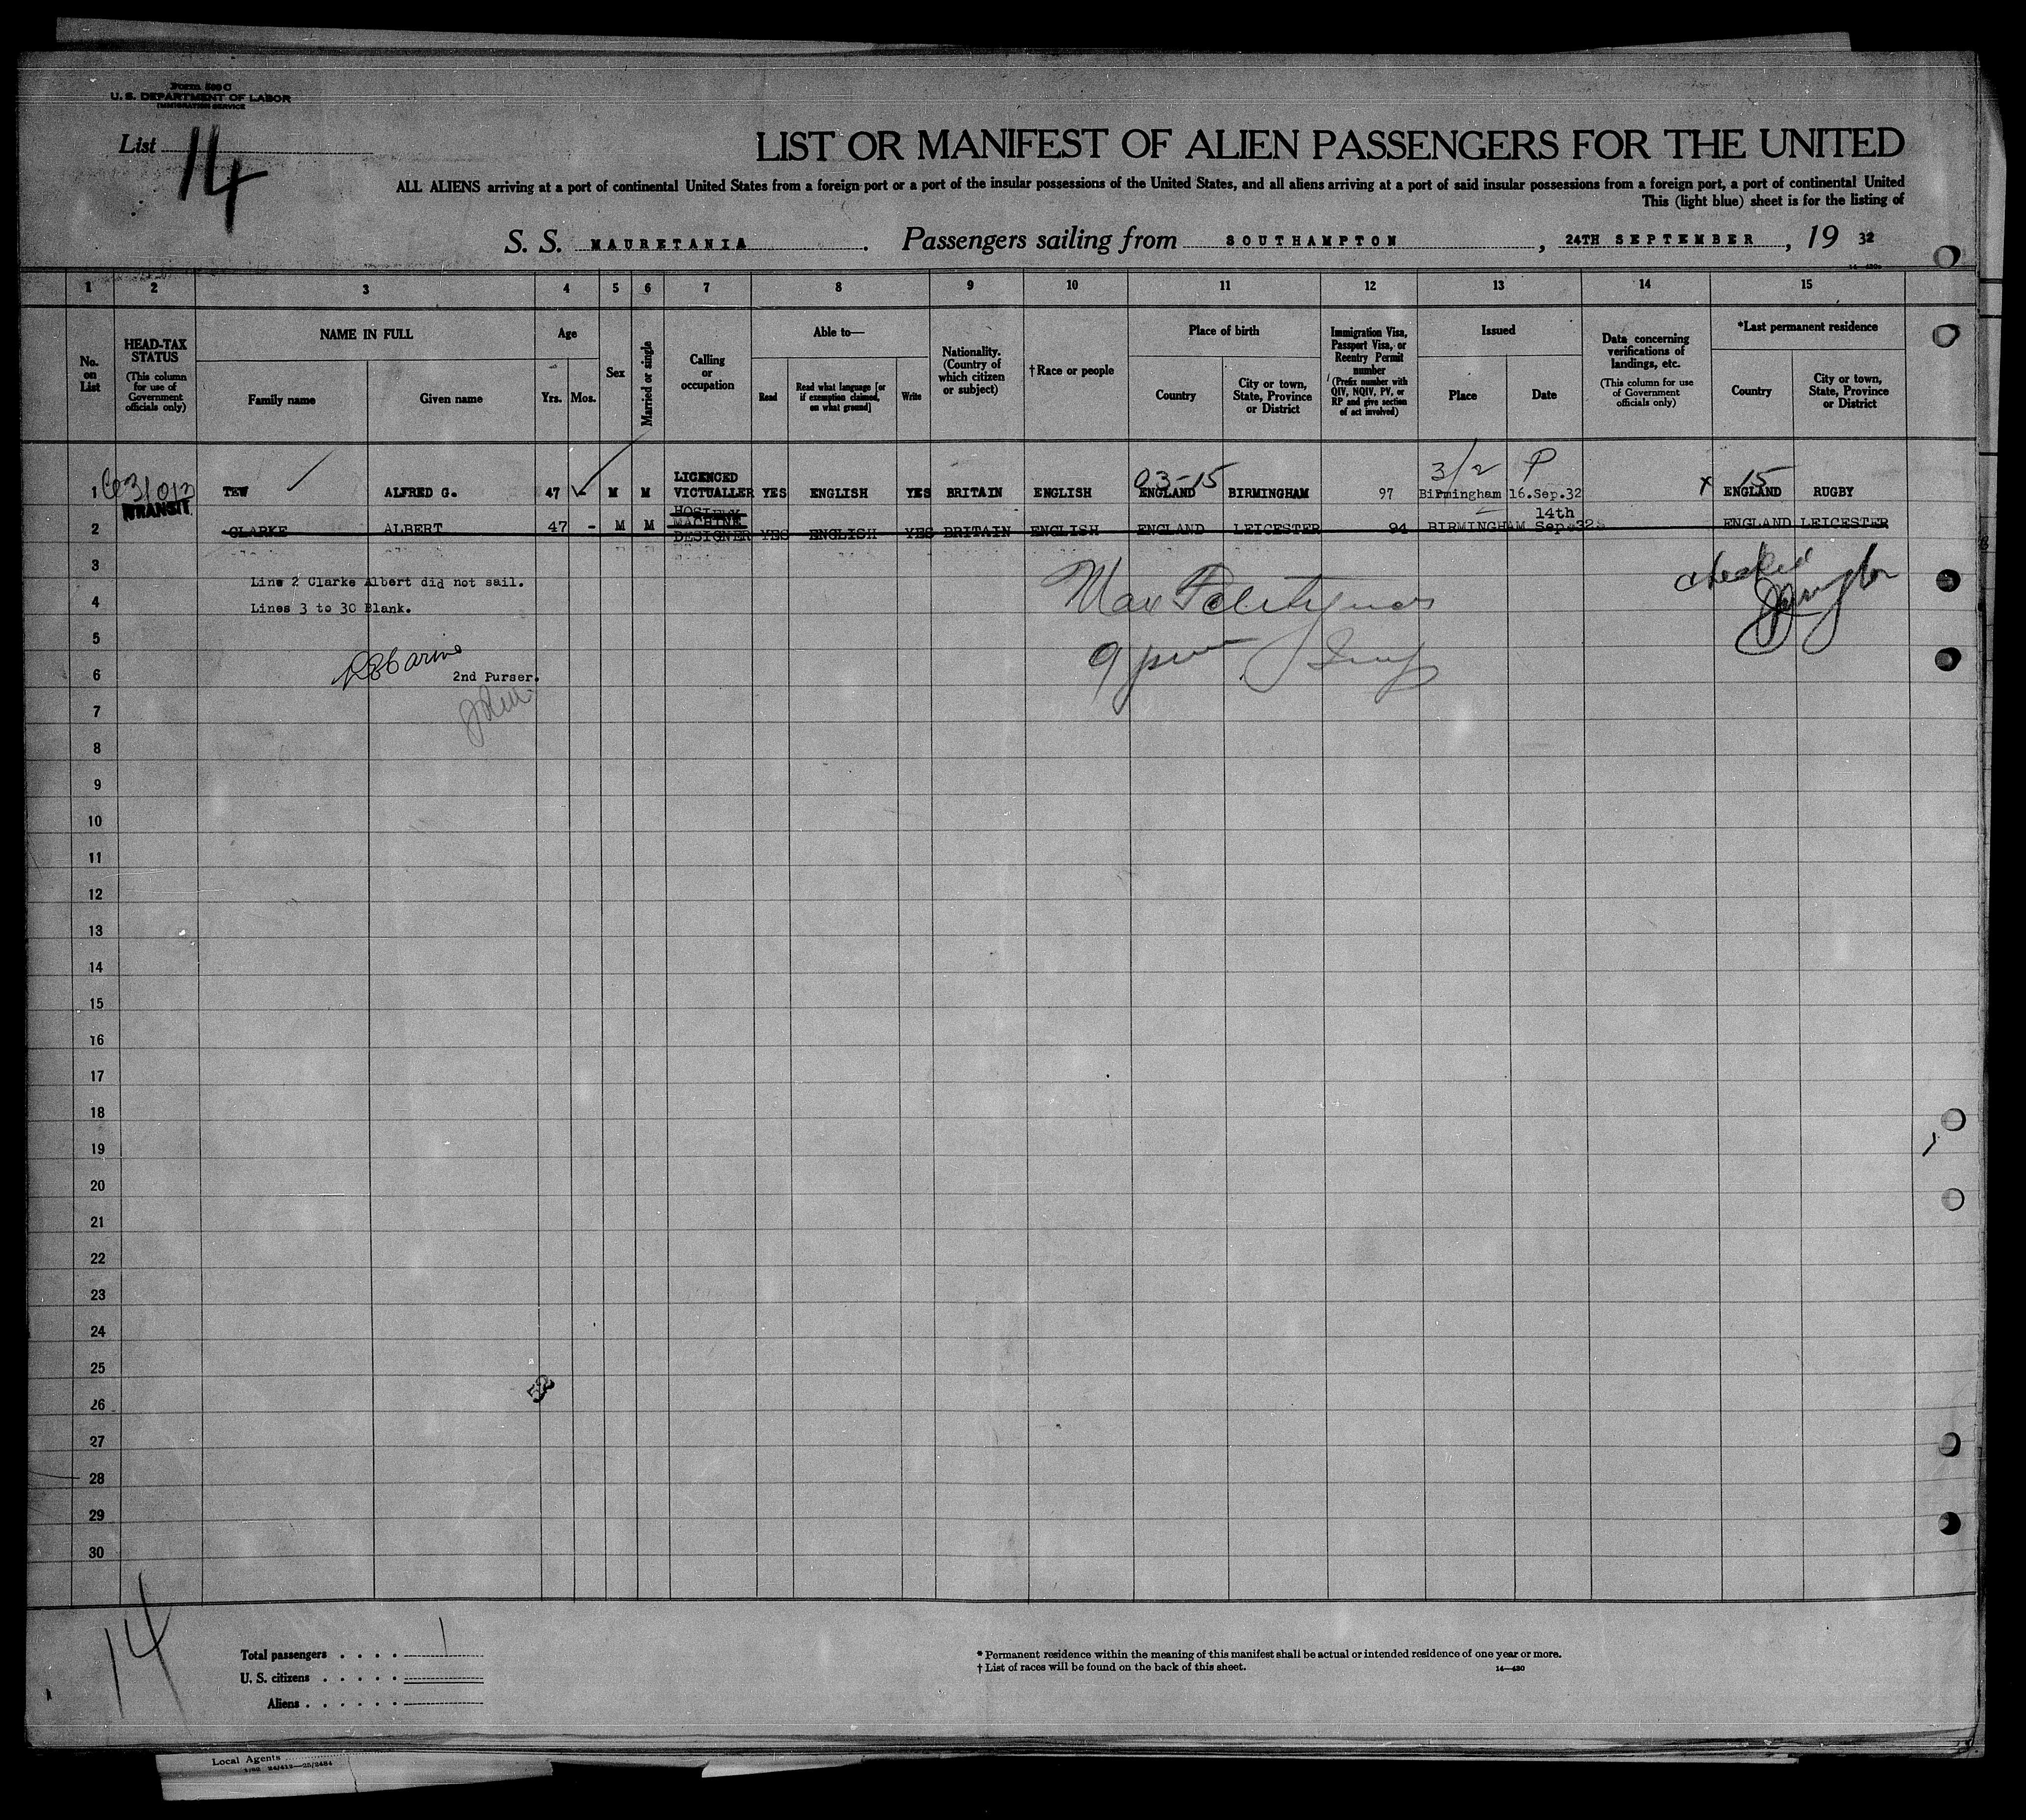 Form 500 C
U. S. DEPARTMENT OF LABOR
IMMIGRATION SERVICE
List 14
LIST OR MANIFEST OF ALIEN PASSENGERS FOR THE UNITED
ALL ALIENS arriving at a port of continental United States from a foreign port or a port of the insular possessions of the United States, and all aliens arriving at a port of said insular possessions from a foreign port, a port of continental United
This (light blue) sheet is for the listing of
S. S. MAURETANIA. Passengers sailing from SOUTHAMPTON, 24TH SEPTEMBER, 19 32
1 2 3 4 5 6 7 8 9 10 11 12 13 14 15
No. on List
HEAD-TAX STATUS
(This column for use of Government officials only)
NAME IN FULL
Family name
Given name
Age
Yrs.
Mos.
Sex
Married or single
Calling or occupation
Able to—
Read
Read what language [or if exemption claimed, on what ground]
Write
Nationality. (Country of which citizen or subject)
†Race or people
Place of birth
Country
City or town, State, Province or District
Immigration Visa, Passport Visa, or Reentry Permit number
(Prefix number with QIV, NQIV, PV, or RP and give section of act involved)
Issued
Place
Date
Data concerning verifications of landings, etc.
(This column for use of Government officials only)
*Last permanent residence
Country
City or town, State, Province or District
3/2 P
03-15
15
1 TRANSIT TEW ALFRED G. 47 - M M LICENCED VICTUALLER YES ENGLISH YES BRITAIN ENGLISH ENGLAND BIRMINGHAM 97 Birmingham 16.Sep.32 x ENGLAND RUGBY
2 CLARKE ALBERT 47 - M M HOSIERY MACHINE DESIGNER YES ENGLISH YES BRITAIN ENGLISH ENGLAND LEICESTER 94 BIRMINGHAM 14th Sep.32. ENGLAND LEICESTER
3 Line 2 Clarke Albert did not sail.
checked
4 Lines 3 to 30 Blank.
Max
5
9 pm
6 2nd Purser.
7
8
9
10
11
12
13
14
15
16
17
18
19
20
21
22
23
24
25
26
27
28
29
30
14
Total passengers . . . . 1
U. S. citizens . . . . .
Aliens . . . . . .
* Permanent residence within the meaning of this manifest shall be actual or intended residence of one year or more.
† List of races will be found on the back of this sheet.
14—430
Local Agents